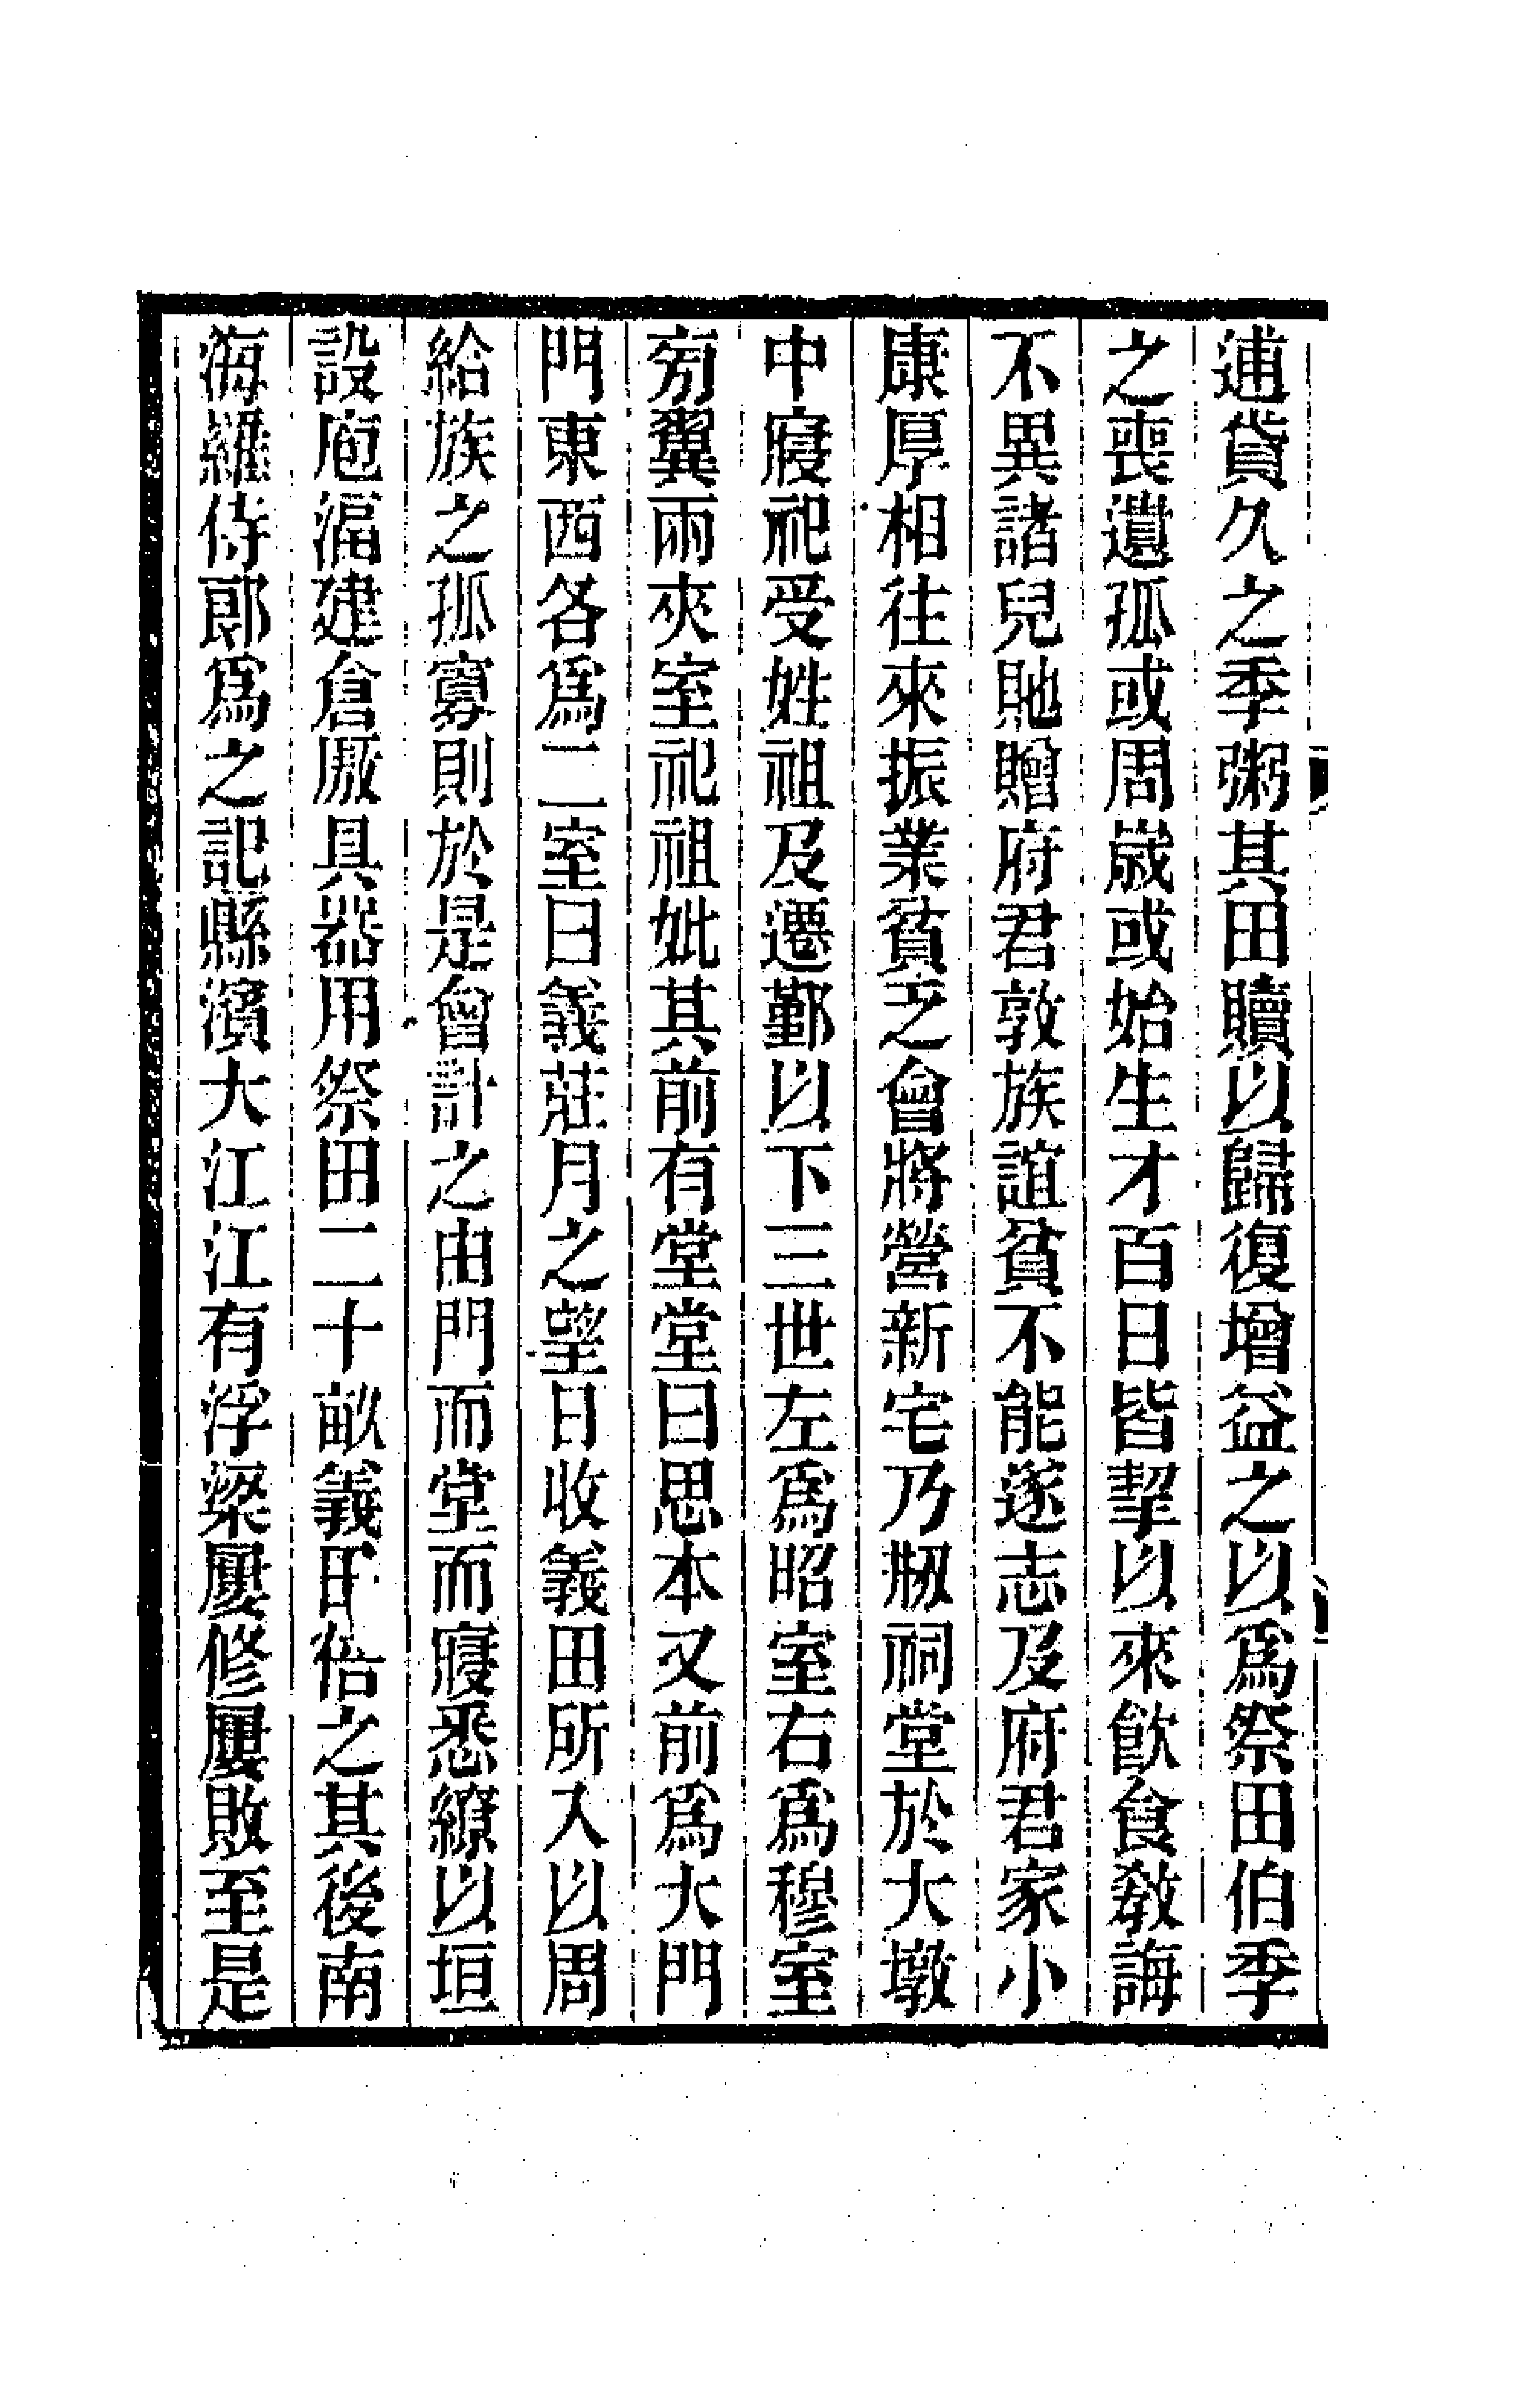 逋貸久之季粥其田贖以歸復增益之以爲祭田伯季
之喪遺孤或周歲或始生才百日皆挈以來飮食敎誨
不異諸兒貤贈府君敦族誼貧不能遂志及府君家小
康厚相往來振業貧乏會將營新宅乃刱祠堂於大墩
中寢祀受姓祖及遷鄞以下三世左爲昭室右爲穆室
旁翼兩夾室祀祖妣其前有堂堂曰思本又前爲大門
門東西各爲二室曰義莊月之望日收義田所入以周
給族之孤寡則於是會計之由門而堂而寢悉繚以垣
設庖湢建倉廒具器用祭田二十畝義田倍之其後南
海羅侍郞爲之記縣濱大江江有浮梁屢修屢敗至是